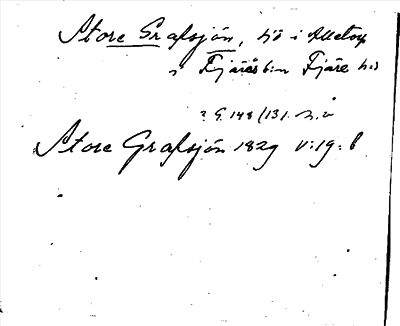 Store Grafsjön, sjö i Älvetorp
s Fjärås b:n Fjäre hd
? G. 148 /131 n. v
Store Grafsjön 1829 V:19:6